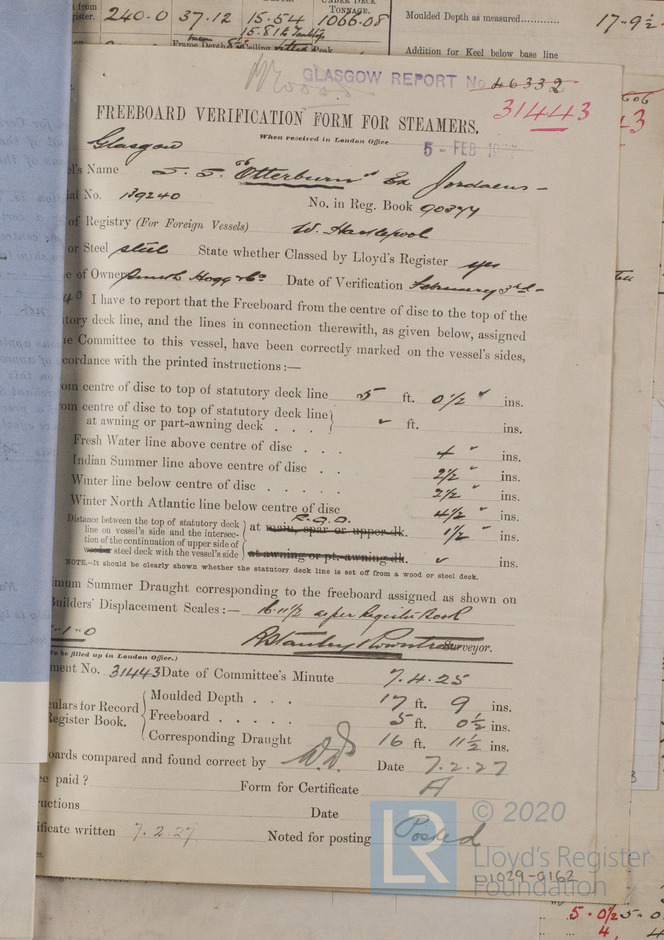 240.0 37.12 15.54 1066.08
UNDER DECK
TONNAGE.
15.81
Moulded Depth as measured............ 17-9½
Addition for Keel below base line
GLASGOW REPORT No 46332
31443
FREEBOARD VERIFICATION FORM FOR STEAMERS.
When received in London Office
5 - FEB
Glasgow
's Name S.S. "Otterburn" Ex Jordaens
No. 139240 No. in Reg. Book 90377
of Registry (For Foreign Vessels) W. Hartlepool
or Steel steel State whether Classed by Lloyd's Register yes
of Owner Smith Hogg & Co Date of Verification February 3rd
I have to report that the Freeboard from the centre of disc to the top of the
tory deck line, and the lines in connection therewith, as given below, assigned
e Committee to this vessel, have been correctly marked on the vessel's sides,
cordance with the printed instructions:—
om centre of disc to top of statutory deck line 5 ft. 0½ " ins.
om centre of disc to top of statutory deck line
at awning or part-awning deck . . . " ft. ins.
Fresh Water line above centre of disc . . . 4 " ins.
Indian Summer line above centre of disc . . 2½ " ins.
Winter line below centre of disc . . . . . 2½ " ins.
Winter North Atlantic line below centre of disc 4½ " ins.
Distance between the top of statutory deck
line on vessel's side and the intersec-
tion of the continuation of upper side of
wood or steel deck with the vessel's side
R.Q.D.
at main, spar or upper dk. 1½ " ins.
at awning or pt. awning dk. " ins.
NOTE.—It should be clearly shown whether the statutory deck line is set off from a wood or steel deck.
imum Summer Draught corresponding to the freeboard assigned as shown on
uilders' Displacement Scales:— 16-11½ as per Register Book
"1"0 R Stanley Rowntree Surveyor.
(To be filled up in London Office.)
ment No. 31443 Date of Committee's Minute 7.4.25
ulars for Record
Register Book.
Moulded Depth . . . 17 ft. 9 ins.
Freeboard . . . . . 5 ft. 0½ ins.
Corresponding Draught 16 ft. 11½ ins.
oards compared and found correct by Date 7.2.27
ee paid? Form for Certificate A
ructions Date
ificate written 7.2.27 Noted for posting Posted
LR © 2020
Lloyd's Register
Foundation
D1029-0162
5-0½ 5-0
4